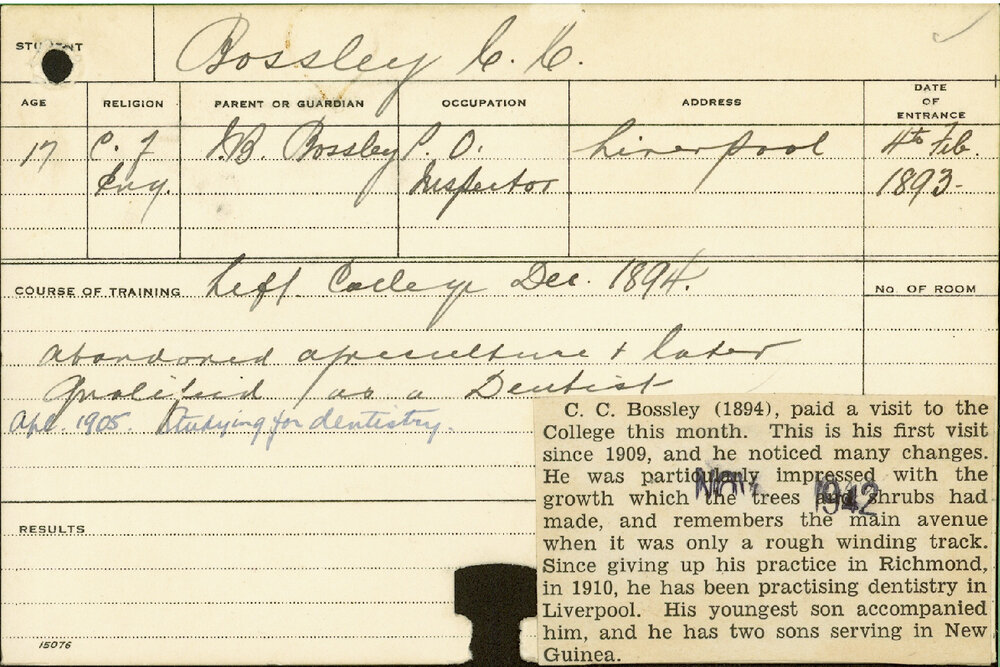 STUDENT Bossley C. C.
AGE RELIGION PARENT OR GUARDIAN OCCUPATION ADDRESS DATE OF ENTRANCE
17 C. of J. B. Bossley P. O. Liverpool 4th Feb.
Eng. Inspector 1893-
COURSE OF TRAINING Left College Dec. 1894. No. OF ROOM
abandoned agriculture & later
qualified as a Dentist
Apl. 1905. Studying for dentistry.
C. C. Bossley (1894), paid a visit to the
College this month. This is his first visit
since 1909, and he noticed many changes.
He was particularly impressed with the
growth which the trees and shrubs had
made, and remembers the main avenue
when it was only a rough winding track.
Since giving up his practice in Richmond,
in 1910, he has been practising dentistry in
Liverpool. His youngest son accompanied
him, and he has two sons serving in New
Guinea.
1942
RESULTS
15076